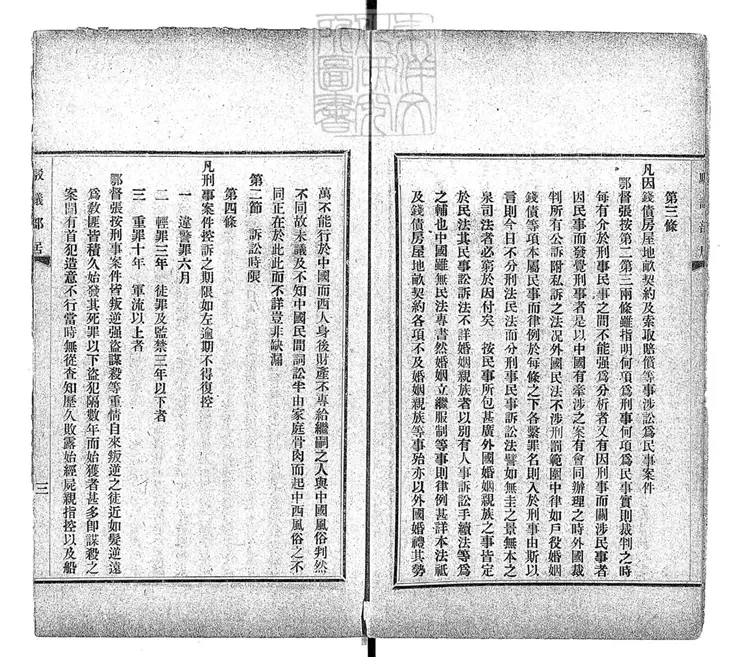 第三條
凡因錢債房屋地畝契約及索取賠償等事涉訟爲民事案件
鄂督張按第二第三兩條雖指明何項爲刑事何項爲民事實則裁判之時
每有介於刑事民事之間不能强爲分析者又有因刑事而關涉民事者
因民事而發覺刑事者是以中國有牽涉之案有會同辦理之時外國裁
判所有公訴附私訴之法况外國民法不涉刑罰範圍中律如戶役婚姻
錢債等項本屬民事而律例於每條之下各繫罪名則入於刑事由斯以
言則今日不分刑法民法而分刑事民事訴訟法譬如無圭之景無本之
泉司法者必窮於因付矣 按民事所包甚廣外國婚姻親族之事皆定
於民法其民事訴訟法不詳婚姻親族者以別有人事訴訟手續法等爲
之輔也中國雖無民法專書然婚姻立繼服制等事則律例甚詳本法祗
及錢債房屋地畝契約各項不及婚姻親族等事殆亦以外國婚禮其勢
萬不能行於中國而西人身後財產不專給繼嗣之人與中國風俗判然
不同故未議及不知中國民間詞訟半由家庭骨肉而起中西風俗之不
同正在於此此而不詳豈非缺漏
第二節 訴訟時限
第四條
凡刑事案件控訴之期限如左逾期不得復控
一 違警罪六月
二 輕罪三年 徒罪及監禁三年以下者
三 重罪十年 軍流以上者
鄂督張按刑事案件皆叛逆强盜謀殺等重情自來叛逆之徒近如髮逆遠
爲敎匪皆積久始發其死罪以下盜犯隔數年而始獲者甚多卽謀殺之
案間有首犯造意不行當時無從查知歷久敗露始經屍親指控以及船
三